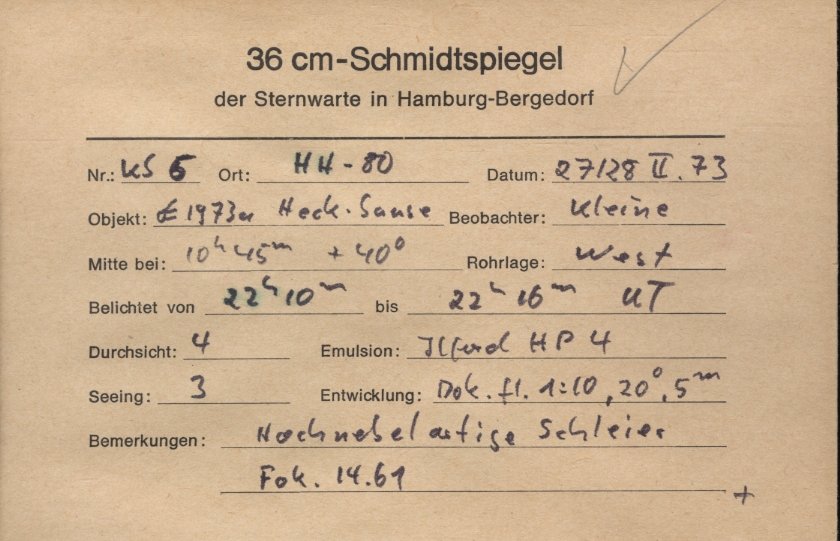 36 cm-Schmidtspiegel
der Sternwarte in Hamburg-Bergedorf
Nr.: KS 5 Ort: HH-80 Datum: 27/28 II. 73
Objekt: 1973a Heck-Sause Beobachter: Kleine
Mitte bei: 10h 45m +40° Rohrlage: West
Belichtet von 22h 10m bis 22h 16m UT
Durchsicht: 4 Emulsion: Ilford HP 4
Seeing: 3 Entwicklung: Dok. fl. 1:10, 20°, 5m
Bemerkungen: Hochnebelartige Schleier
Fok. 14.61
+